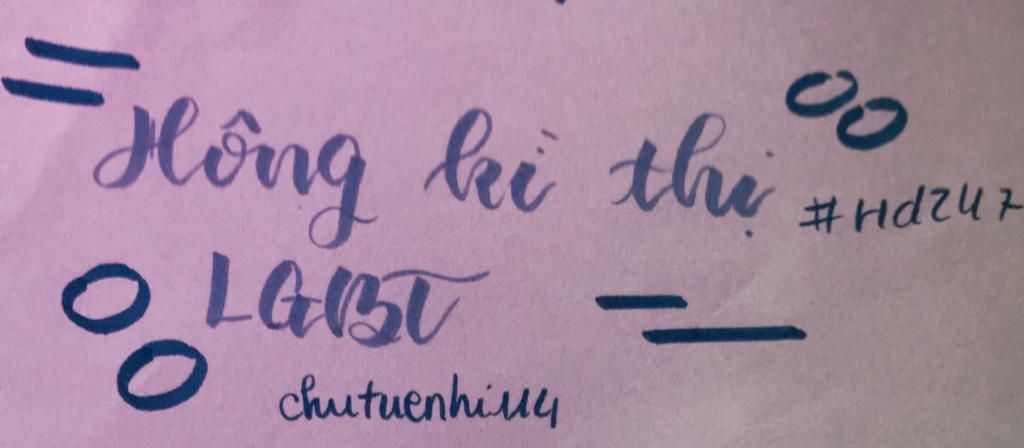 Hông kì thị
#Hd247
LGBT
chutuenhi.114